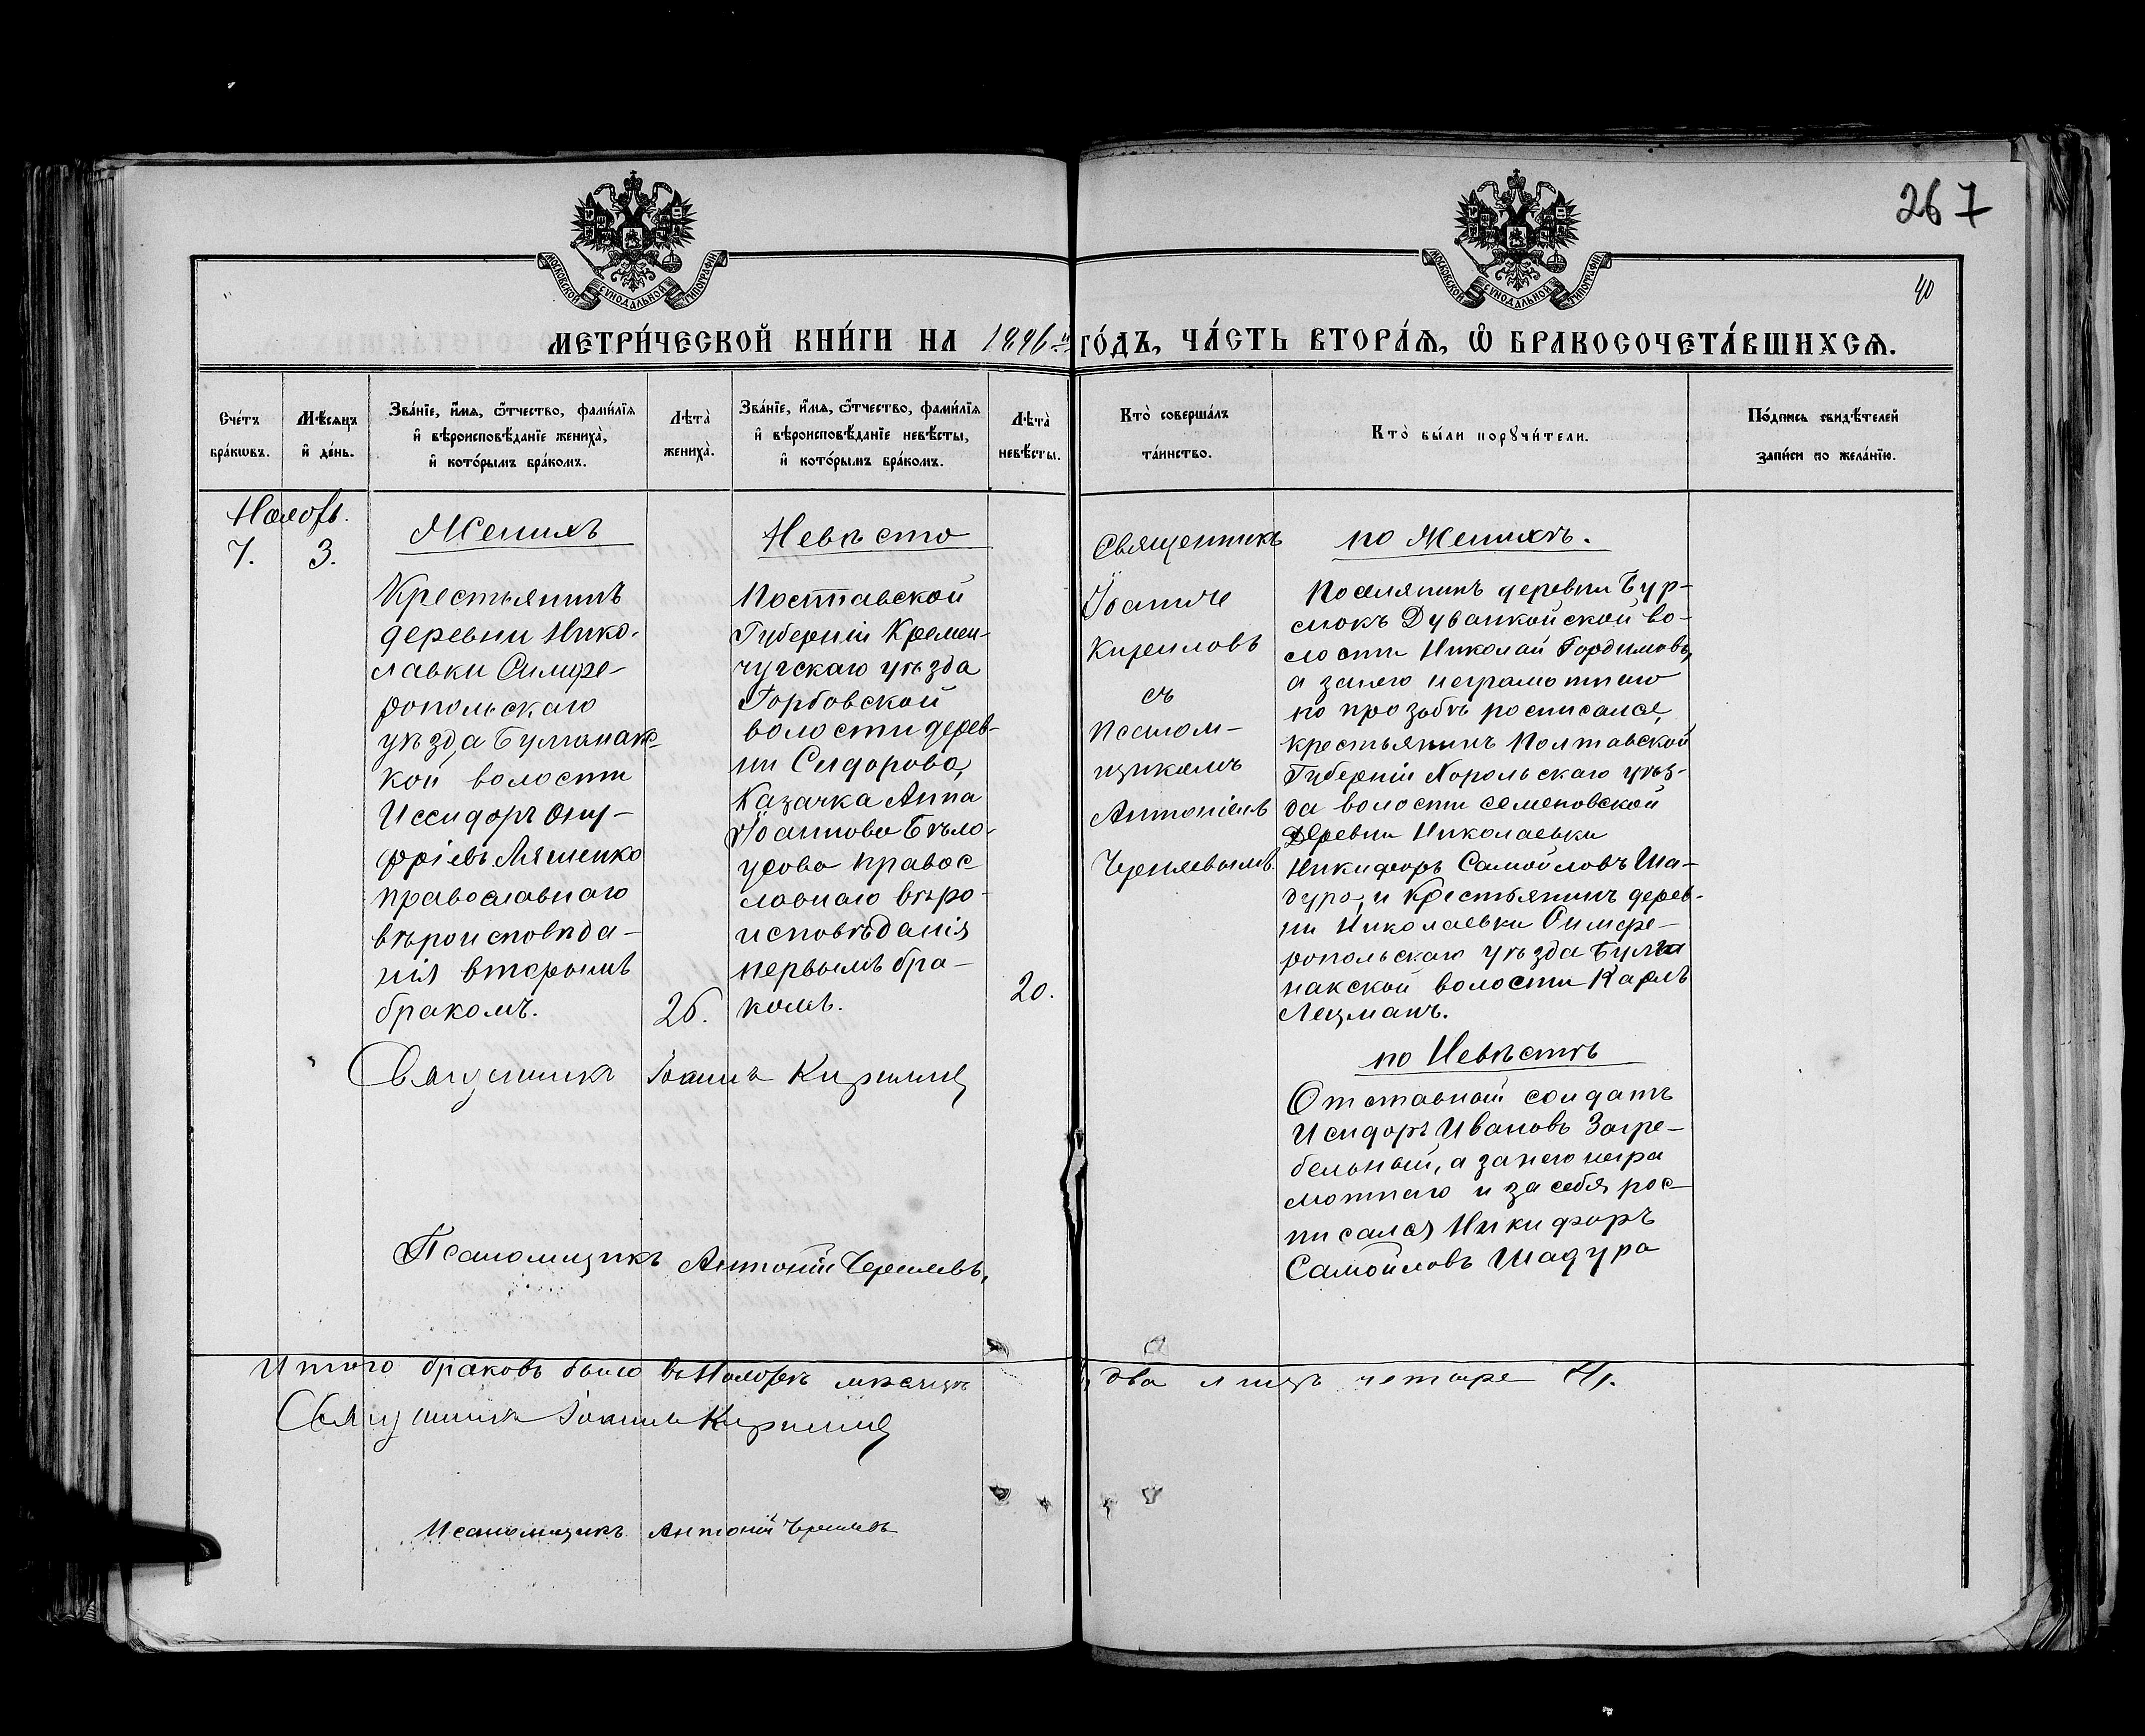 267
40
МОСКОВСКОЙ СѴНОДАЛЬНОЙ ТИПОГРАФІИ
МОСКОВСКОЙ СѴНОДАЛЬНОЙ ТИПОГРАФІИ
МЕТРИ́ЧЕСКОЙ КНИ́ГИ НА 1896 й ГО́ДЪ, ЧА́СТЬ ВТОРА́Ѧ, Ѽ БРАКОСОЧЕТА́ВШИХСѦ.
Сче́тъ
бра́кѡвъ.
Мѣ́сѧцъ
и҆ де́нь.
Зва́нїе, и҆́мѧ, ѻ҆́тчество, фами́лїѧ
и҆ вѣроисповѣ́данїе жениха̀,
и҆ кото́рымъ бра́комъ.
Лѣта̀
жениха̀.
Зва́нїе, и҆́мѧ, ѻ҆́тчество, фами́лїѧ
и҆ вѣроисповѣ́данїе невѣ́сты,
и҆ кото́рымъ бра́комъ.
Лѣта̀
невѣ́сты.
Кто̀ соверша́лъ
та́инство.
Кто̀ бы́ли порꙋчи́тели.
По́дпись свидѣ́телей
за́писи по жела́нїю.
Ноябрь.
7.
3.
Женихъ
Крестьянинъ
деревни Нико-
лаевки Симфе-
ропольскаго
уѣзда Булганак-
кой волости
Иссидоръ Ону-
фріевъ Ляшенко
православнаго
вѣроисповѣда-
нія вторымъ
бракомъ.
26.
Невѣста
Полтавской
Губерніи Кремен-
чугскаго уѣзда
Горбовской
волости дерев-
ни Сидорова,
Казачка Анна
Іоаннова Бѣло-
усова правос
лавнаго вѣро-
исповѣданія
первымъ бра-
комъ.
20.
Священникъ
Іоаннъ
Кириловъ
съ
псалом-
щикомъ
Антоніемъ
Черняевымъ.
по Женихѣ.
Поселянинъ деревни Бур-
люкъ Дуванкойской во-
лости Николай Гордимовъ,
а за него неграмотнаго
по прозьбѣ росписался,
крестьянинъ Полтавской
Губерніи Хорольскаго уѣз-
да волости Семеновской
Деревни Николаевки
Никифоръ Самойловъ Ша-
дура, и Крестьянинъ дерев-
ни Николаевки Симфе-
ропольскаго уѣзда Булга
накской волости Карлъ
Лецманъ.
по Невѣстѣ
Отставной солдатъ
Исидоръ Ивановъ Загре-
бельный, а за него негра
мотнаго и за себя рос-
писался Никифоръ
Самойловъ Шадура
Священникъ Іоаннъ Кириллов
Псаломщикъ Антоній Черняевъ.
Итого браковъ было въ Ноябрѣ мѣсяцѣ два лицъ четыре 4.
Священникъ Іоаннъ Кириллов
Псаломщикъ Антоній Черняевъ